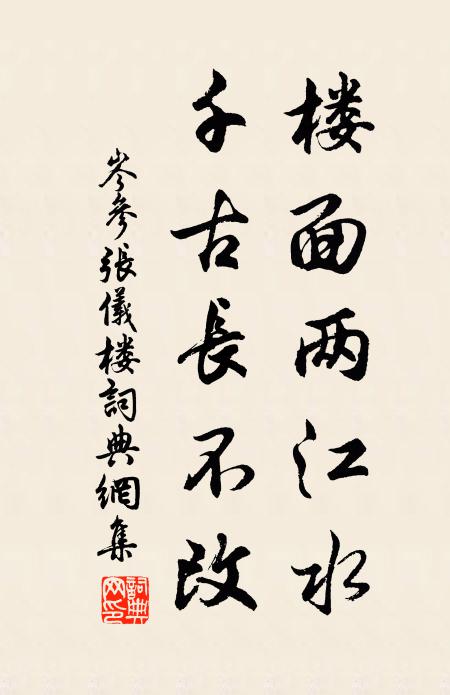 楼面两江水
千古長不改
岑參張儀楼詞典網集
詞典网印